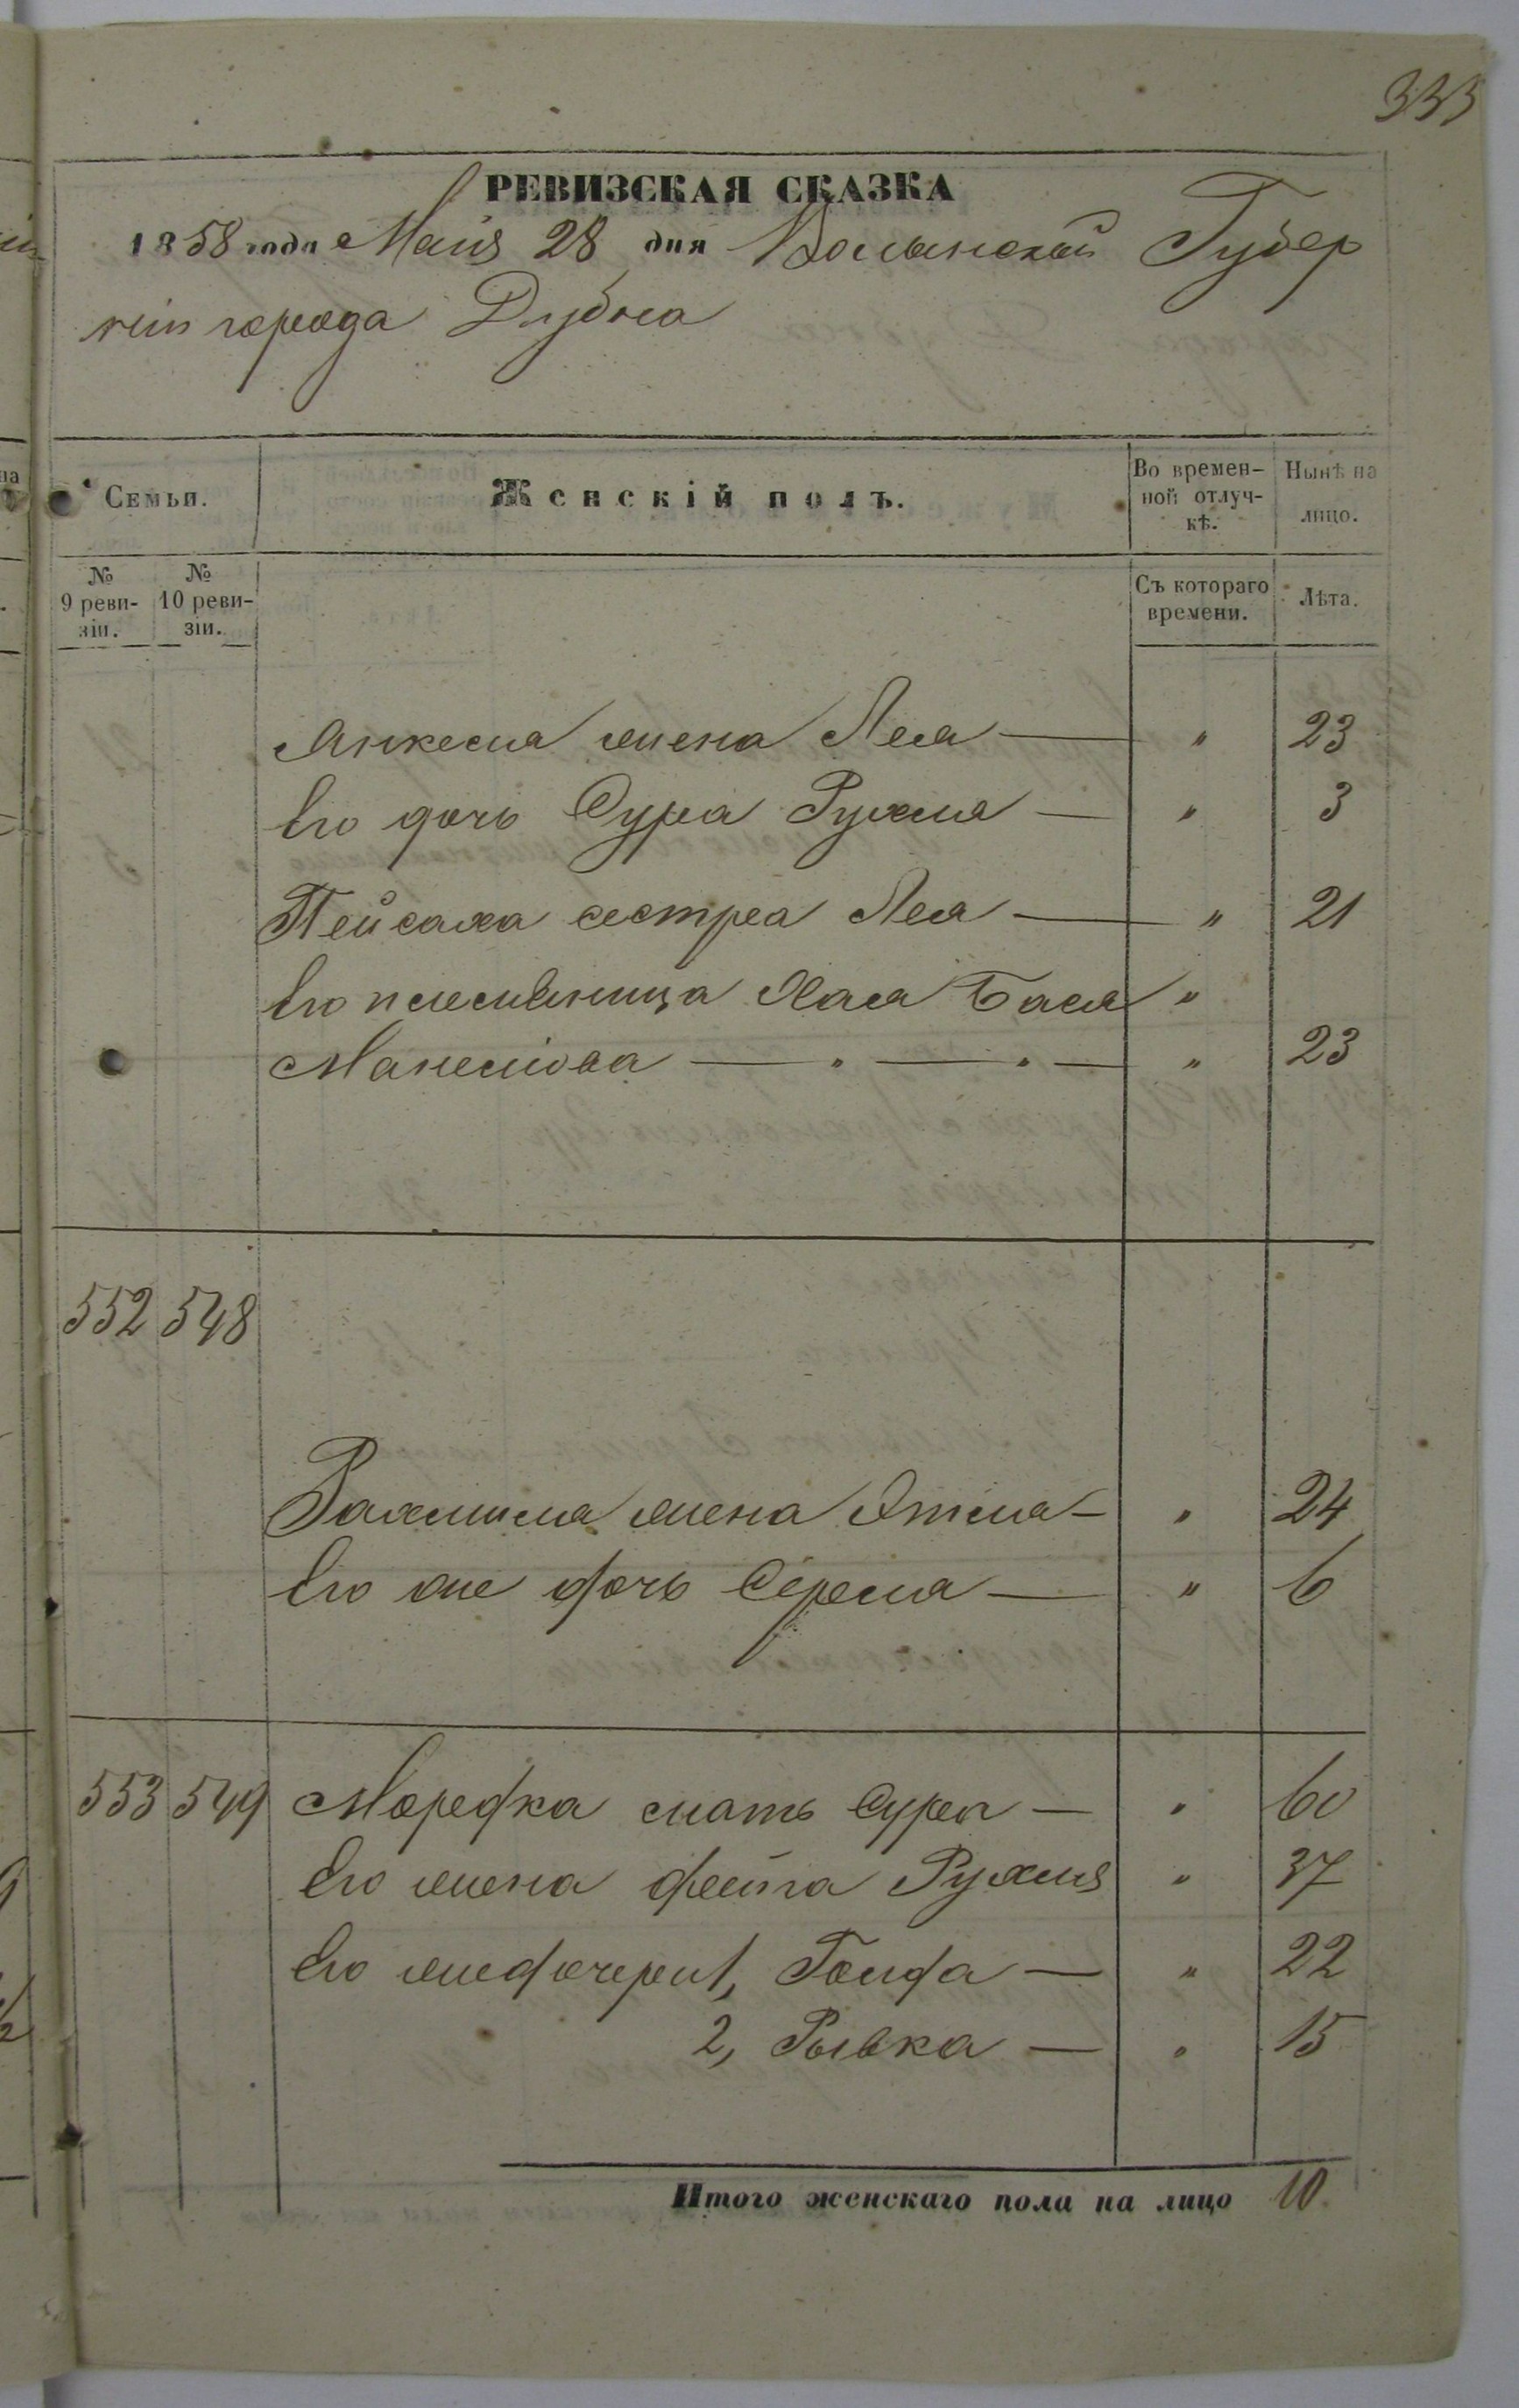 333
РЕВИЗСКАЯ СКАЗКА
1858 года Маія 28 дня Волынской Губер
ніи города Дубна
Семьи.
Женскій полъ.
Во времен-
ной отлуч-
кѣ.
Нынѣ на
лицо.
№
9 реви-
зіи.
№
10 реви-
зіи.
Съ котораго
времени.
Лѣта.
Янкеля жена Лея — " 23
Его дочь Сура Рухля — " 3
Пейсаха сестра Лея — " 21
Его племянница Хая Бася "
Манелiова — " — " — " 23
552 548
Рахмиля жена — " 24
Его же дочь — " 6
553 549 Мордка мать Сура — " 60
Его жена Фейга Рухля " 37
Его же дочери 1, Голда — " 22
2, Рывка — " 15
Итого женскаго пола на лицо 10.